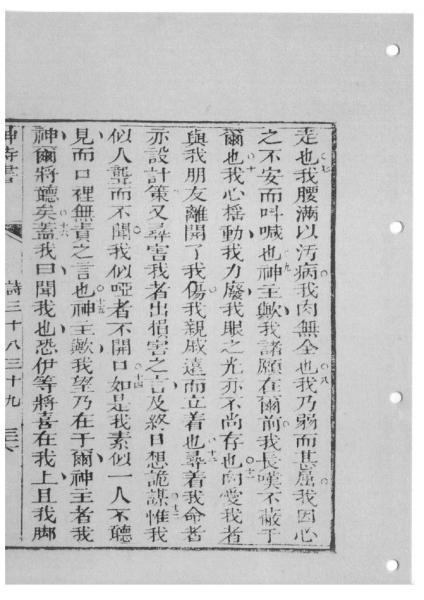 走也○七我腰滿以汚病我肉無全也○八我乃弱而甚屈我因心
之不安而呌喊也○九神主歟我諸願在爾前我長嘆不蔽于
爾也○十我心搖動我力廢我眼之光亦不尚存也○十一向愛我者
與我朋友離開了我傷我親戚遠而立着也○十二尋着我命者
亦設計策又尋害我者出損害之言及終日想詭謀○十三惟我
似人聾而不聞我似啞者不開口○十四如是我素似一人不聽
見而口裡無責之言也○十五神主歟我望乃在于爾神主者我
神爾將聽矣○十六蓋我曰聞我也恐伊等將喜在我上且我脚
神詩書 詩三十八三十九